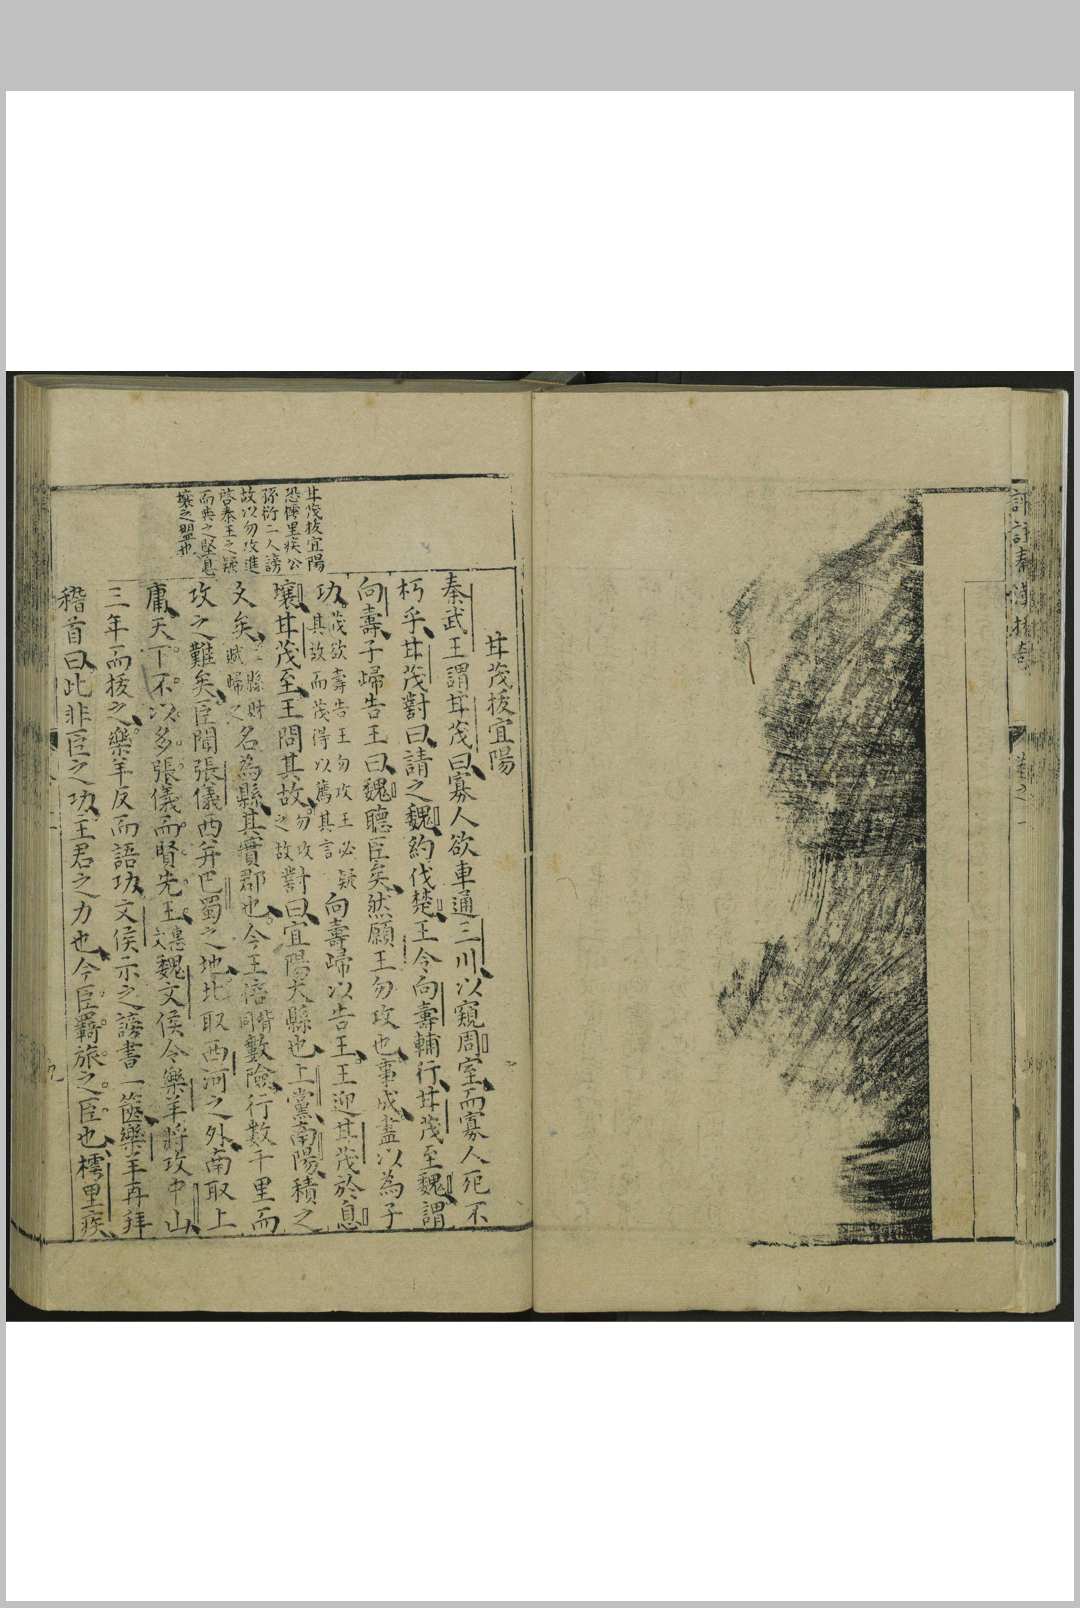 評註秦漢
卷之一
甘茂拔宜陽
恐樗里疾公
孫衍二人謗
故以勿攻進
啓秦王之疑
而與之堅息
壤之盟也
甘茂拔宜陽
秦武王謂甘茂曰寡人欲車通三川以窺周室而寡人死不
朽乎甘茂對曰請之魏約伐楚王令向壽輔行甘茂至魏謂
向壽子歸告王曰魏聽臣矣然願王勿攻也事成盡以為子
功茂欲壽告王勿攻王必疑其故而茂得以薦其言向壽歸以告王王迎甘茂於息
壤甘茂至王問其故勿攻之故對曰宜陽大縣也上黨南陽積之
久矣二縣財賦歸之名為縣其實郡也今王倍背同數險行數千里而
攻之難矣臣聞張儀西并巴蜀之地北取西河之外南取上
庸天下不以多張儀而賢先王惠文魏文侯令樂羊將攻中山
三年而拔之樂羊反而語功文侯示之謗書一篋樂羊再拜
稽首曰此非臣之功主君之力也今臣羇旅之臣也樗里疾
九